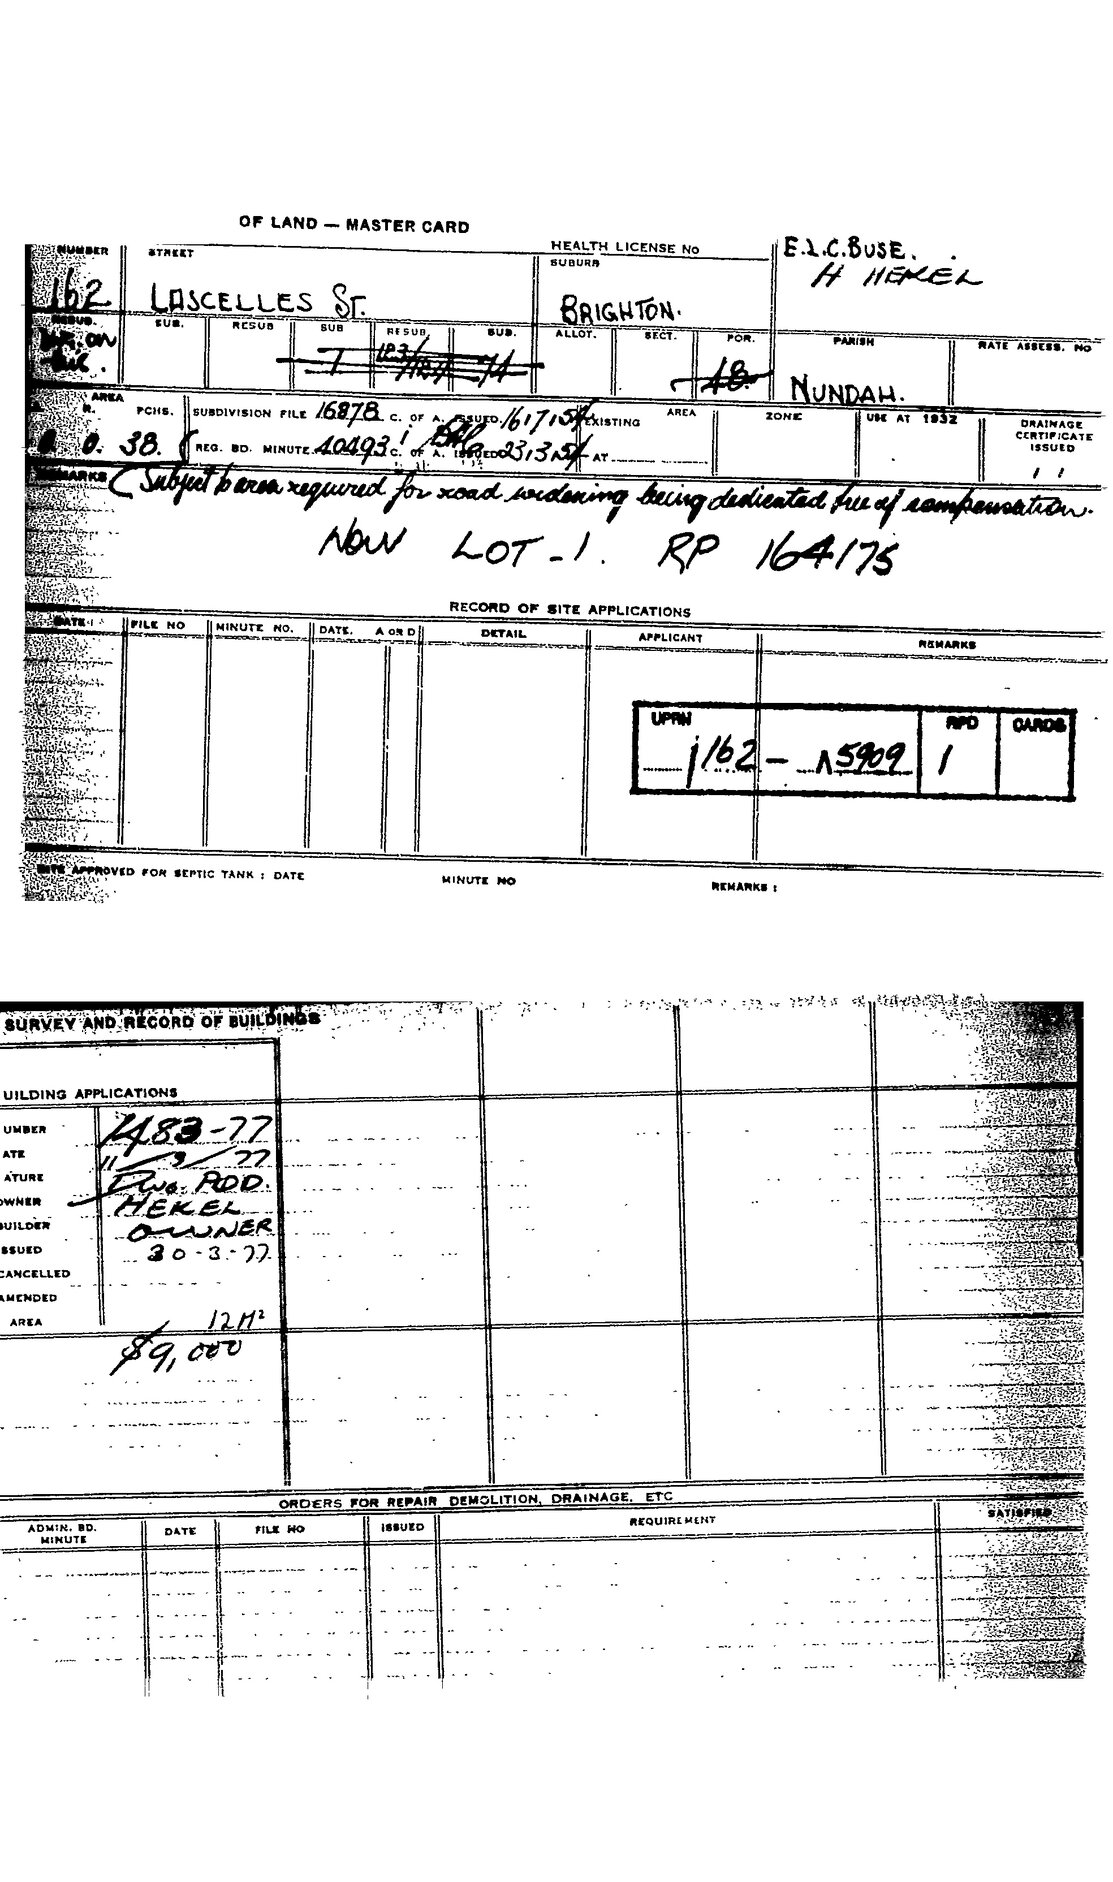 OF LAND — MASTER CARD
NUMBER STREET HEALTH LICENSE No E.L.C.BUSE.
SUBURB H HEKEL
162 LASCELLES ST. BRIGHTON.
RESUB. SUB. RESUB SUB RESUB. SUB. ALLOT. SECT. POR. PARISH RATE ASSESS. NO
1 123/ 74 18. NUNDAH.
AREA
R. PCHS. SUBDIVISION FILE 16878 C. OF A. ISSUED 16/7/54 EXISTING AREA ZONE USE AT 1932 DRAINAGE CERTIFICATE ISSUED
0. 0. 38. REG. BD. MINUTE 40493 C. OF A. ISSUED 23.3.54 AT / /
REMARKS (Subject to area required for road widening being dedicated free of compensation.
NOW LOT - 1. RP 164175
RECORD OF SITE APPLICATIONS
DATE FILE NO MINUTE NO. DATE. A OR D DETAIL APPLICANT REMARKS
UPRN RPD CARDS
162 — 5909 1
SITE APPROVED FOR SEPTIC TANK : DATE MINUTE NO REMARKS :
SURVEY AND RECORD OF BUILDINGS
UILDING APPLICATIONS
UMBER 1483-77
ATE 11/3/77
ATURE DWG. ADD.
OWNER HEKEL
BUILDER OWNER
SSUED 30-3-77
CANCELLED
AMENDED
AREA 12M²
$9,000
ORDERS FOR REPAIR DEMOLITION, DRAINAGE, ETC
ADMIN. BD. MINUTE DATE FILE NO ISSUED REQUIREMENT SATISFIED